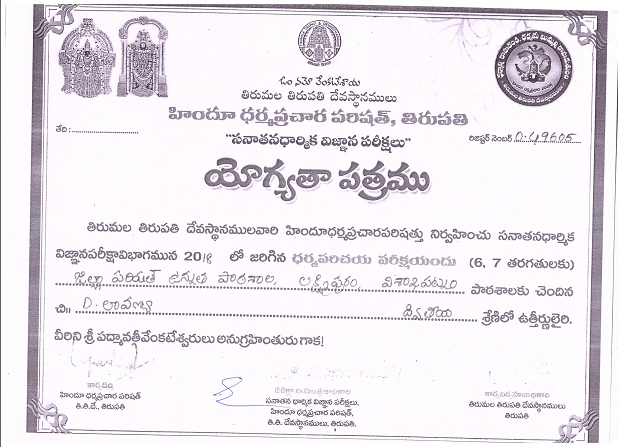 ఓం నమో వేంకటేశాయ
తిరుమల తిరుపతి దేవస్థానములు
హిందూ ధర్మప్రచార పరిషత్, తిరుపతి
తేది :
"సనాతనధార్మిక విజ్ఞాన పరీక్షలు"
రిజిష్టర్ నెంబర్ D-49605
యోగ్యతా పత్రము
తిరుమల తిరుపతి దేవస్థానములవారి హిందూధర్మప్రచారపరిషత్తు నిర్వహించు సనాతనధార్మిక
విజ్ఞానపరీక్షావిభాగమున 2018 లో జరిగిన ధర్మపరిచయ పరీక్షయందు (6, 7 తరగతులకు)
జిల్లా పరిషత్ ఉన్నత పాఠశాల, లక్ష్మీపురం, విశాఖపట్నం పాఠశాలకు చెందిన
చి॥ D. లావణ్య ద్వితీయ శ్రేణిలో ఉత్తీర్ణులైరి.
వీరిని శ్రీ పద్మావతీవేంకటేశ్వరులు అనుగ్రహింతురు గాక!
కార్యదర్శి
హిందూ ధర్మప్రచార పరిషత్
తి.తి.దే., తిరుపతి
పరీక్షా నియంత్రణాధికారి
సనాతన ధార్మిక విజ్ఞాన పరీక్షలు,
హిందూ ధర్మప్రచార పరిషత్,
తి.తి. దేవస్థానములు, తిరుపతి.
కార్యనిర్వహణాధికారి
తిరుమల తిరుపతి దేవస్థానములు
తిరుపతి